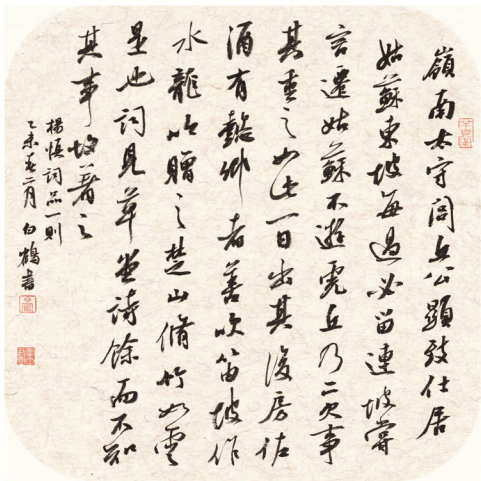 嶺南太守閭丘公顯致仕居
姑蘇東坡每過必留連坡嘗
言遷姑蘇不遊虎丘乃二欠事
其重之如此一日出其後房佐
酒有懿卿者善吹笛坡作
水龍吟贈之楚山脩竹如雲
是也詞見草堂詩餘而不知
其事故著之
楊慎詞品一則
乙未春二月白鶴書